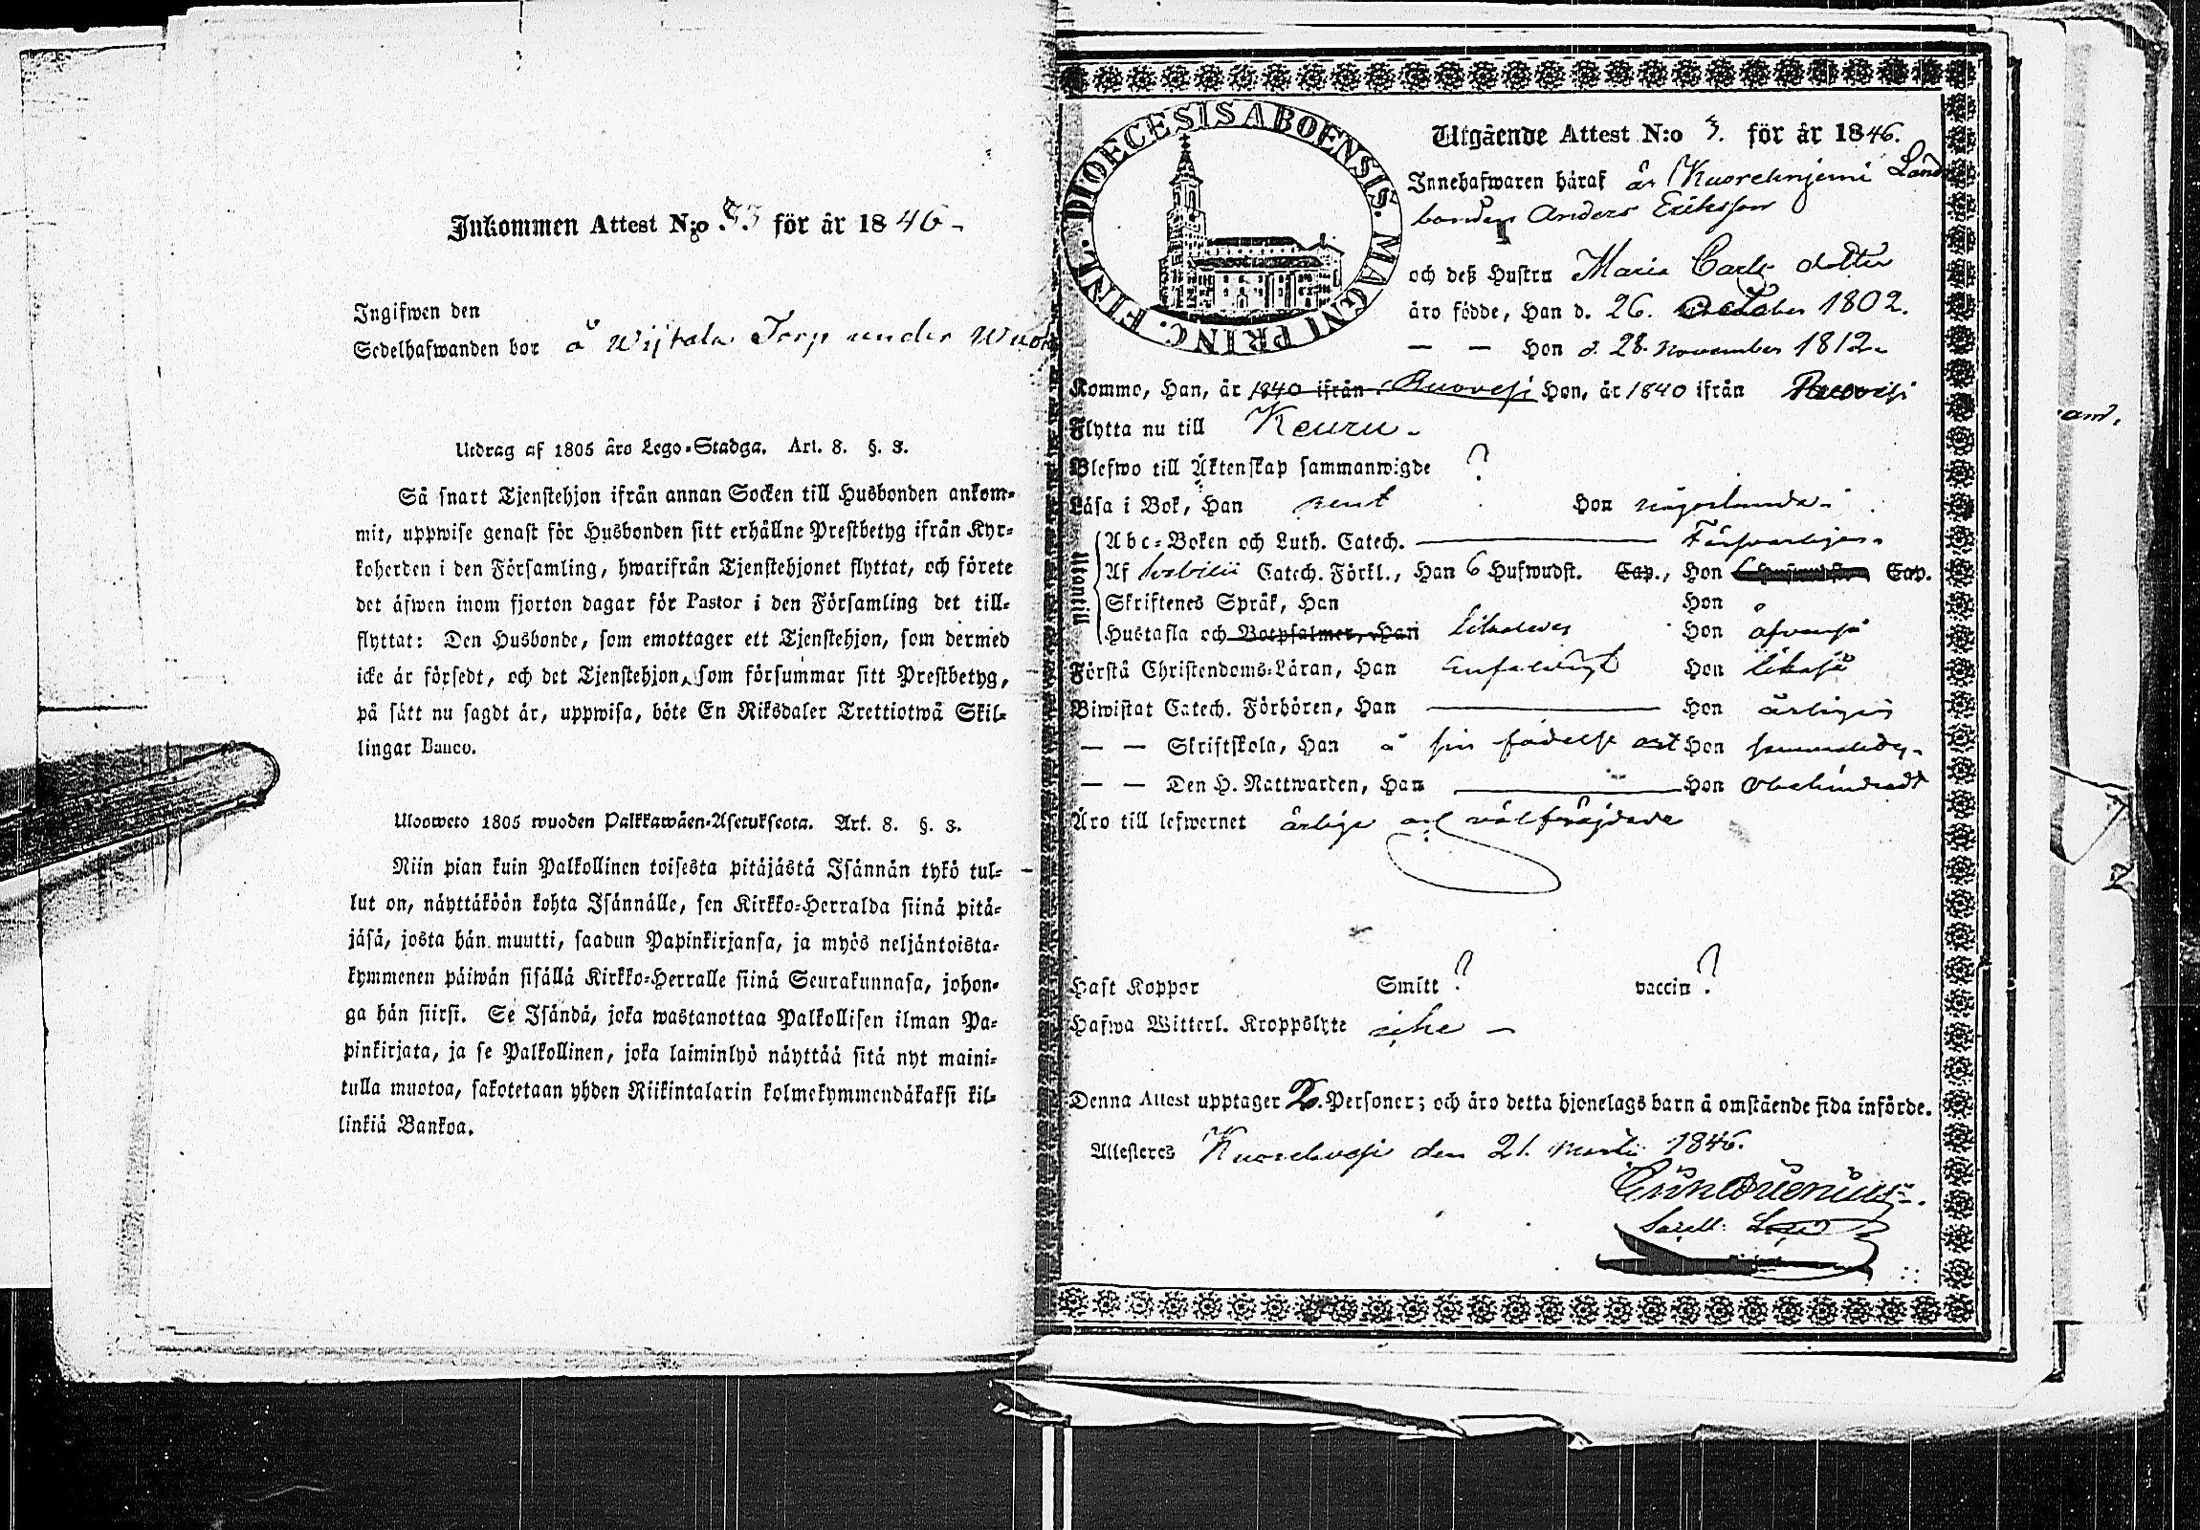 Inkommen Attest N:o 53 för år 1846
Ingifwen den
Sedelhafwanden bor å Wijtala Torp under
Utdrag af 1805 års Lego-Stadga. Art. 8. §. 3.
Så snart Tjenstehjon ifrån annan Socken till Husbonden ankom-
mit, uppwise genast för Husbonden sitt erhållne Prestbetyg ifrån Kyr-
koherden i den Församling, hwarifrån Tjenstehjonet flyttat, och förete
det äfwen inom fjorton dagar för Pastor i den Församling det till-
flyttat: Den Husbonde, som emottager ett Tjenstehjon, som dermed
icke är försedt, och det Tjenstehjon, som försummar sitt Prestbetyg,
på sätt nu sagdt är, uppwisa, böte En Riksdaler Trettiotwå Skil-
lingar Banco.
Uloosweto 1805 wuoden Palkkawäen-Asetukseota. Art. 8. §. 3.
Niin pian kuin Palkollinen toisesta pitäjästä Isännän tykö tul-
lut on, näyttäköön kohta Isännälle, sen Kirkko-Herralda siinä pitä-
jäsä, josta hän muutti, saadun Papinkirjansa, ja myös neljäntoista-
kymmenen päiwän sisällä Kirkko-Herralle siinä Seurakunnasa, johon-
ga hän siirsi. Se Isändä, joka wastanottaa Palkollisen ilman Pa-
pinkirjata, ja se Palkollinen, joka laiminlyö näyttää sitä nyt maini-
tulla muotoa, sakotetaan yhden Riikintalarin kolmekymmendäkaksi kil-
linkiä Bankoa.
DIOECESIS ABOENSIS. MAGNI PRINC. FINL.
Utgående Attest N:o 3. för år 1846.
Innehafwaren häraf är Land
bonden Anders Eriksson
och deß Hustru Maria Carls dotter
äro födde, Han d. 26. October 1802.
— — Hon d. 28. November 1812.
Kommo, Han, år 1840 ifrån Ruovesi Hon, år 1840 ifrån Ruovesi
Flytta nu till Keuru.
Blefwo till Äktenskap sammanwigde ?
Läsa i Bok, Han rent Hon någorlunda.
Utantill
Abc-Boken och Luth. Catech. Försvarligen.
Af Catech. Förkl., Han 6 Hufwudst. Cap., Hon Cap.
Skriftenes Språk, Han Hon
Hustafla och Botpsalmer, Han likaledes Hon
Förstå Christendoms-Läran, Han enfaldigt Hon likaså
Biwistat Catech. Förhören, Han Hon årligen
— — Skriftskola, Han å sin födelse ort Hon sammaledes
— — Den H. Nattwarden, Han Hon obehindradt
Äro till lefwernet ärlige och välfräjdade
Haft Koppor Smitt ? vaccin ?
Hafwa Witterl. Kroppslyte icke
Denna Attest upptager 2. Personer; och äro detta hjonelags barn å omstående sida införde.
Attesteras Kuorehvesi den 21. Martii 1846.